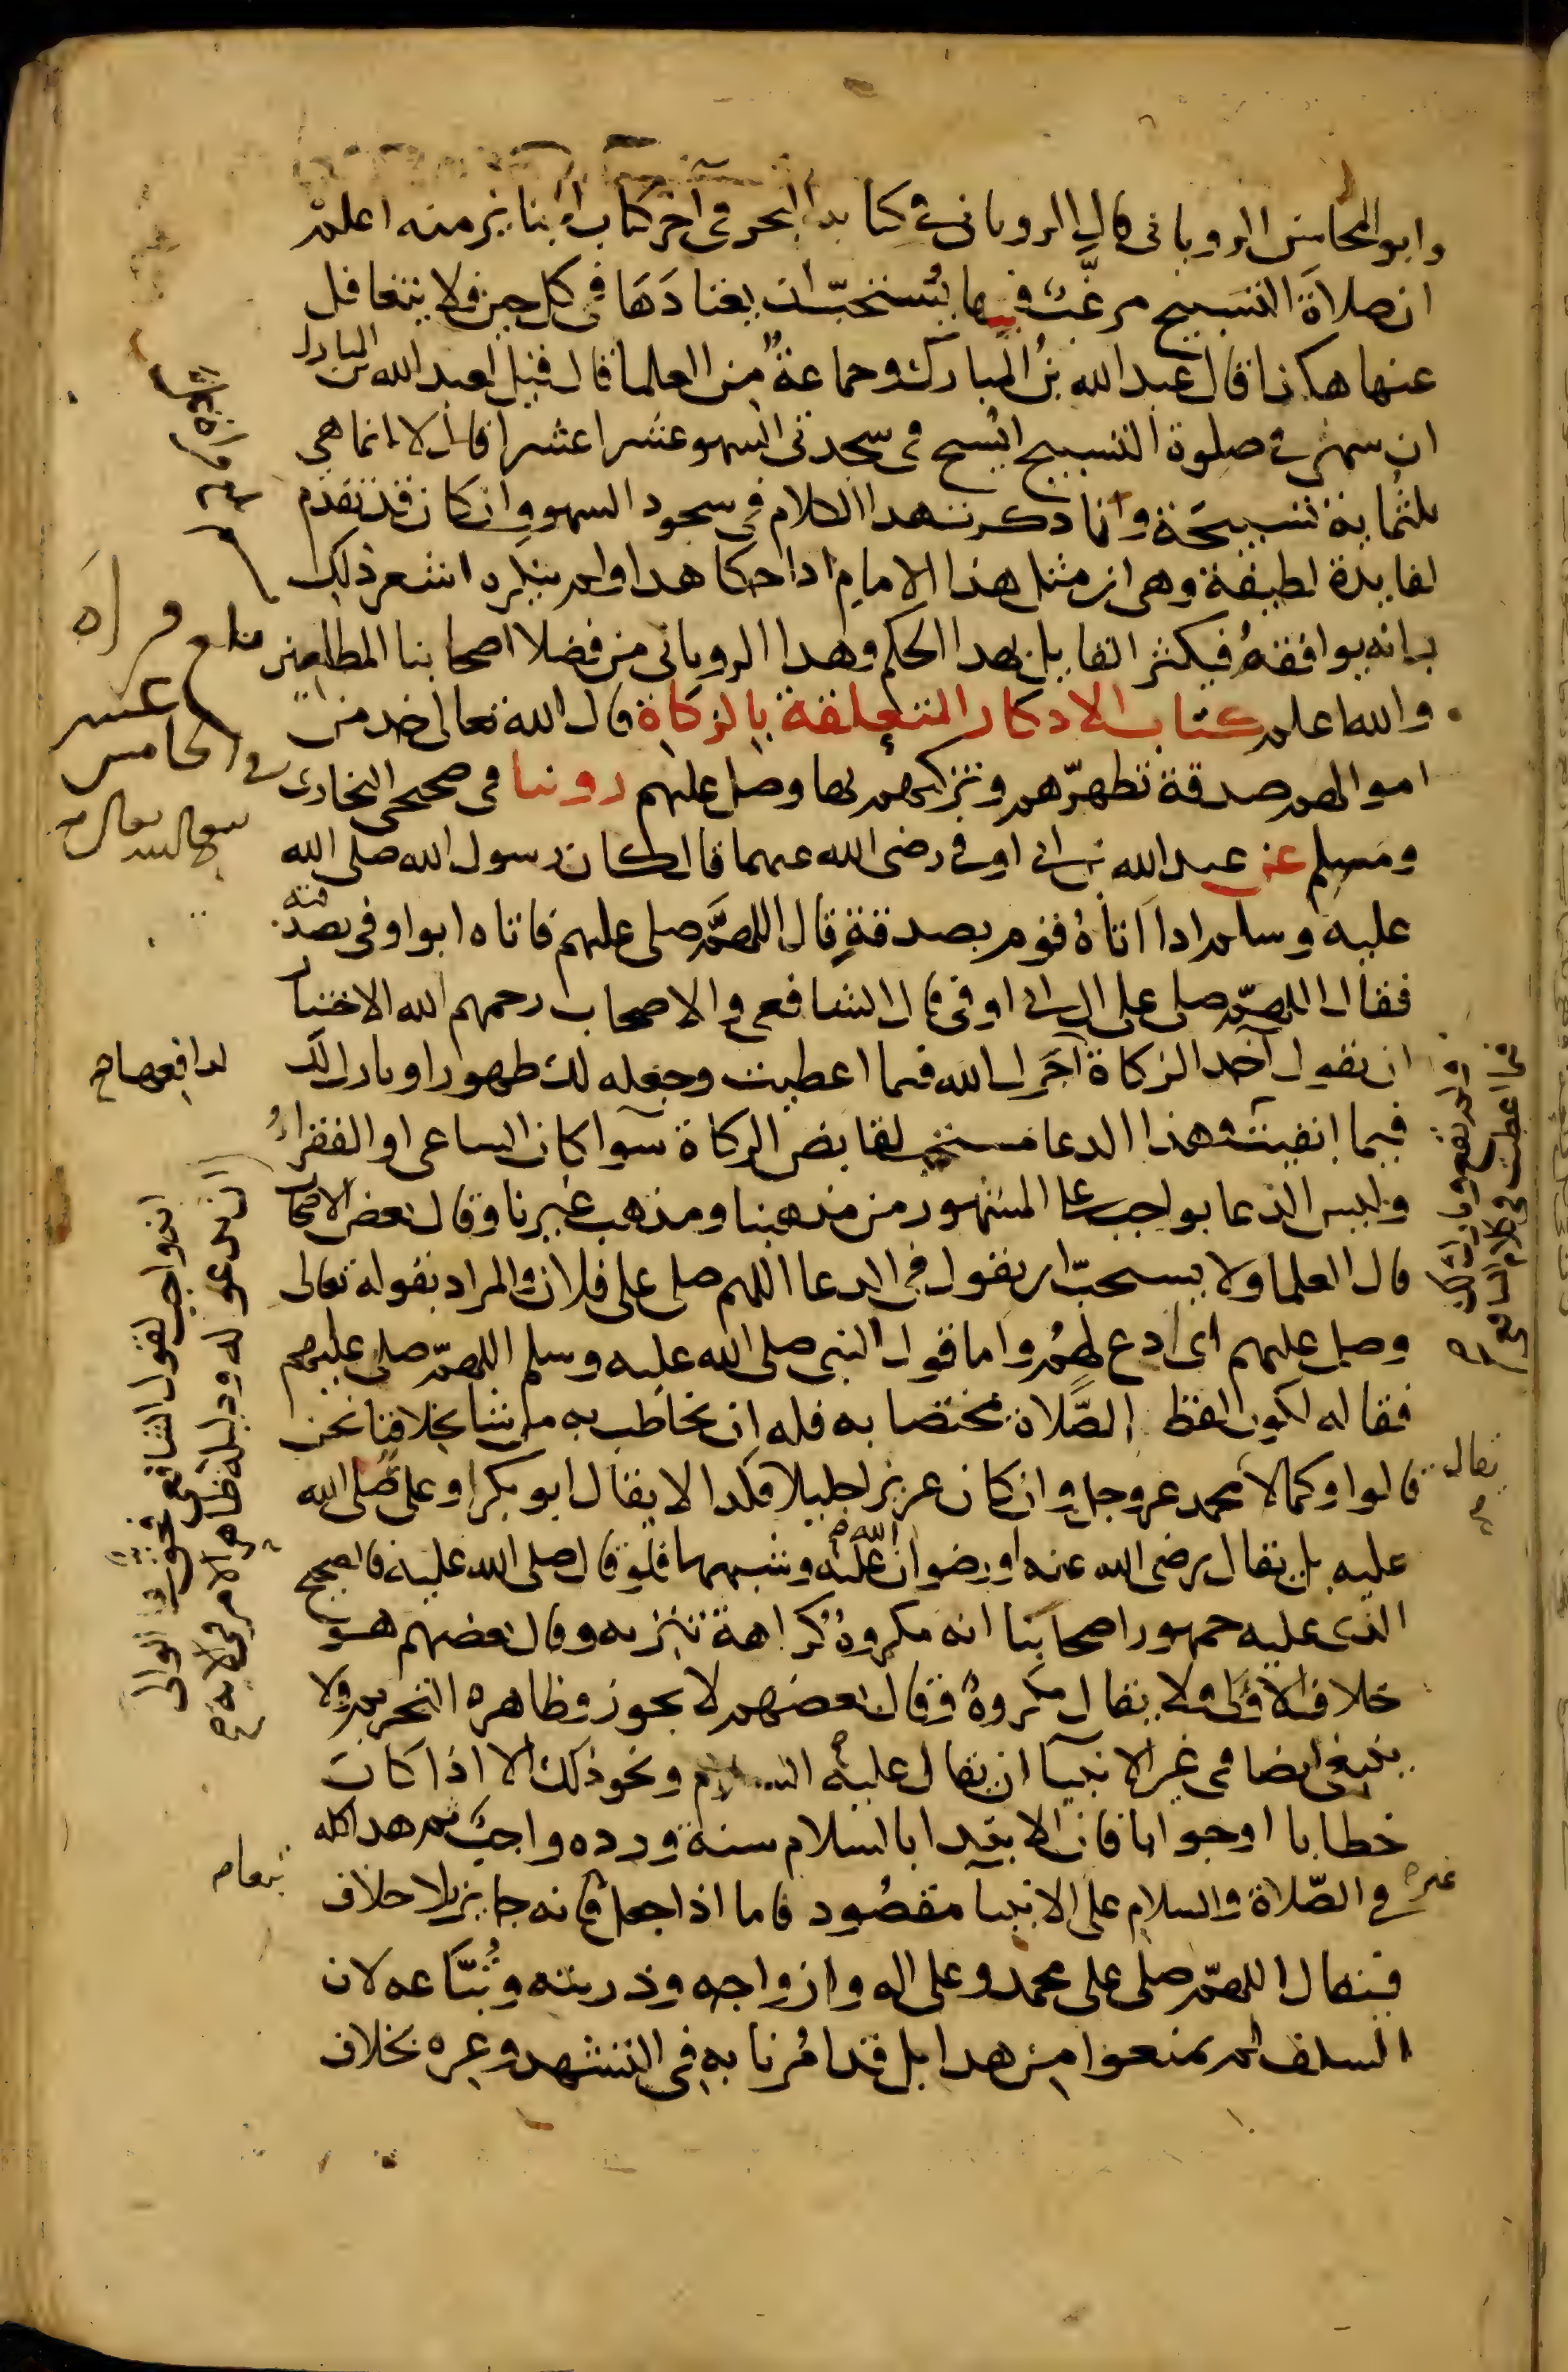 وابو المحاسن الروياني قال الروياني في كتابه البحر في آخر كتاب الجنايز منه اعلم
ان صلاة التسبيح مرغّب فيها يُستحبّ ان يعتادَهَا في كل حين ولا يتغافل
عنها هكذا قال عبد الله بنُ المبارك وجماعةٌ من العلما قال قيل لعبد الله بن المبارك
ان سهى في صلوة التسبيح ايُسبح في سجدتي السهو عشرا عشرا قال لا انما هي
ثلثمُاية تسبيحَة وانما ذكرت هذا الكلام في سجود السهو وان كان قد تقدّم
لفايدة لطيفة وهي ان مثل هذا الامام اذا حكا هذا ولم ينكره اشعر ذلك
بانه يوافقهُ فيكثر القايل بهذا الحكم وهذا الروياني من فضلا اصحابنا المطلعين
والله اعلم كتاب الاذكار المتعلقة بالزكاة قال الله تعالى خذ من
اموالهم صدقة تطهرّهم وتزكيهم بها وصل عليهم روينا في صحيحي البخاري
ومسلم عن عبد الله بن ابي اوفى رضي الله عنهما قال كان رسول الله صلى الله
عليه وسلم اذا اتاهُ قوم بصدقةٍ قال اللهمَّ صلى عليهم فاتاه ابو اوفى بصدقته
فقال اللهمّ صلى على ال ابي اوفى قال الشافعي والاصحاب رحمهم الله الاختيار
ان يقول آخذ الزكاة آجَرك الله فيما اعطيت وجعله لك طهورا وبارك لك
فيما ابقيت وهذا الدعا مستحب لقابض الزكاة سوآ كان الساعي او الفقراءُ
وليس الدعا بواجب على المشهور من مذهبنا ومذهب غيرنا وقال بعض الاصحاب
قال العلما ولا يستحبّ ان يقول في الدعا اللهم صل على فلان والمراد بقوله تعالى
وصل عليهم اي ادع لهمُ واما قول النبي صلى الله عليه وسلم اللهمّ صلى عليهم
فقاله لكون لفظ الصَّلاة مختصا به فله ان يخاطب به من يشا بخلافنا نحن
قالوا وكما لا محمد عز وجل وان كان عزيزا جليلا فكذا لا يقال ابو بكر او على صَلى الله
عليه بل يقال رضي الله عنه او رضوان الله عليه وشبههما فلو قال صلى الله عليه فالصحيح
الذي عليه جمهور اصحابنا انه مكروهٌ كراهة تنزيه وقال بعضهم هو
خلاف الاَوْلى ولا يقال مكروهٌ وقال بعضهم لا يجوز وظاهره التحريم ولا
ينبغي ايضا في غير الانبيآ ان يقال عليه السلام ونحو ذلك الا اذا كانَ
خطابا او جوابا فان الابتدا بالسلام سنة ورده واجبٌ ثم هذا كله
في الصّلاة والسلام على الانبيا مقصُود فاما اذا جعل فانه جايز بلا خلاف
فيقال اللهمّ صلى على محمد وعلى اله وازواجه وذريته وتُبّاعه لان
السلف لم يمنعوا من هذا بل قد امُرنا به في التشهد وغيره بخلاف
بلغ قراه
عشر
في الخامس
انه واجب لقول الشافعي
ان يدعو له ودليله ظاهر الامر في الاية
في كلام الشافعي
يقال
غير